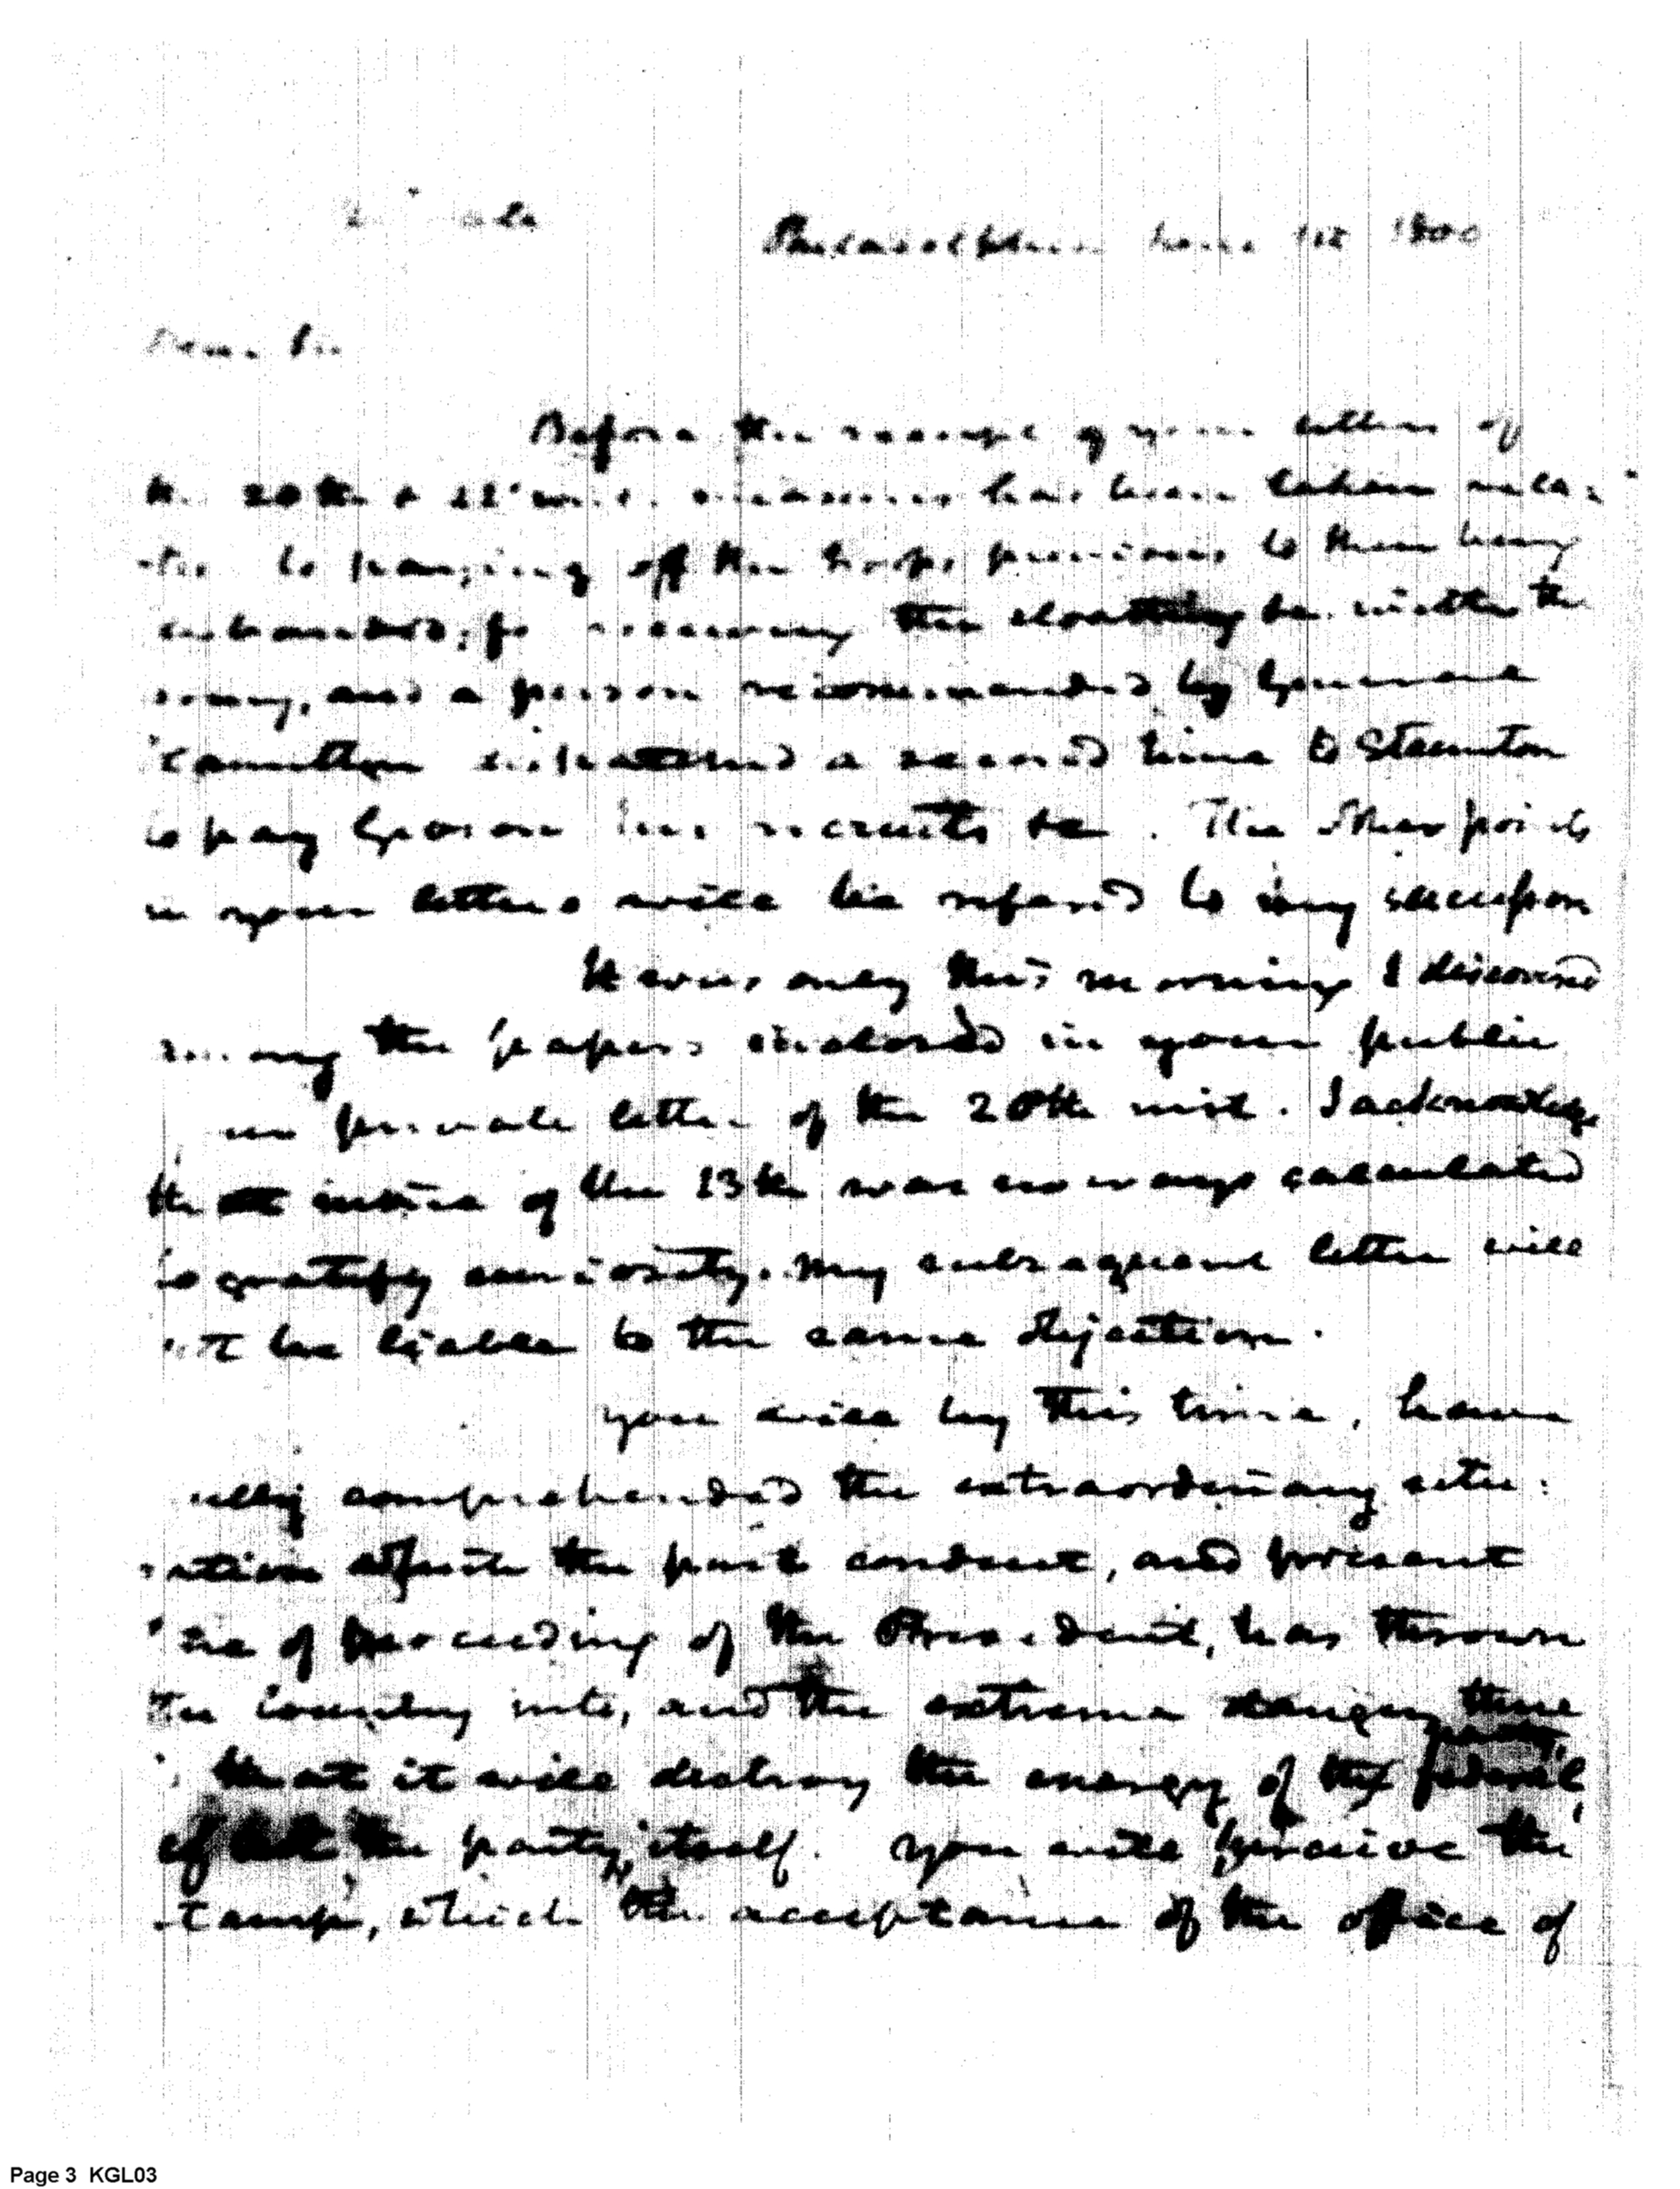 Philadelphia June 1st 1800
Dear Sir
Before the receipt of your letters of
the 20th & measures had been taken rela-
-tive to paying off the troops previous to their being
disbanded; for receiving the cloathing &c. within the
army, and a person recommended by General
Hamilton dispatched a second time to Staunton
to pay his recruits &c. The other points
in your letters will be refered to my successor
It was only this morning I discovered
among the papers inclosed in your public
private letter of the 20th inst. I acknowledge
that mine of the 13th was no ways calculated
to gratify curiosity. My subsequent letter will
not be liable to the same objection.
you will by this time, have
fully comprehended the extraordinary situ:
ation the past conduct, and present
of proceeding of the President, has thrown
the Country into, and the extreme danger there
is, that it will destroy the energy of the federal party,
if not the party itself. You will perceive the
stamp, which the acceptance of the office of
Page 3 KGL03